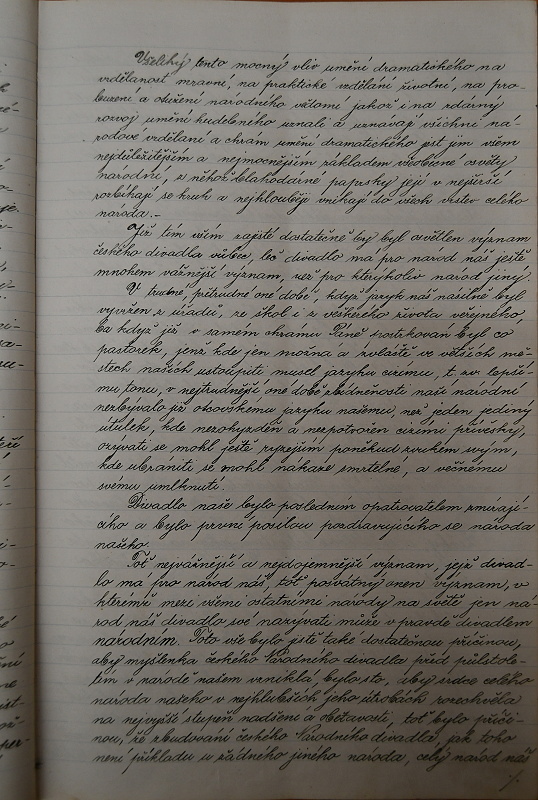 Veliký tento mocný vliv umění dramatického na
vzdělanost mravní, na praktické vzdělání životní, na pro-
buzení a otužení národního vědomí jakož i na zdárný
rozvoj umění hudebního uznali a uznávají všichni ná-
rodové vzdělaní a chrám umění dramatického jest jim všem
nejdůležitějším a nejmocnějším základem všeobecné osvěty
národní, z něhož blahodárné paprsky její v nejširší
rozbíhají se kruh a nejhlouběji vnikají do všech vrstev celého
národa.-
Již tím vším zajisté dostatečně by byl osvětlen význam
českého divadla vůbec, leč divadlo má pro národ náš ještě
mnohem vážnější význam, než pro kterýkoliv národ jiný.
V trudné, přetrudné oné době, když jazyk náš násilně byl
vyvržen z úřadů, ze škol i z veškerého života veřejného,
ba když již v samém chrámu Páně postrkován byl co
pastorek, jenž kde jen možná a zvláště ve větších mě-
stech našich ustoupiti musil jazyku cizímu, t. zv. lepší-
mu tónu, v nejtrudnější oné době naší národní
nezbývalo již otcovskému jazyku našemu, než jeden jediný
útulek, kde nezohyzděn a nepotvořen cizími přívěsky,
ozývati se mohl ještě ryzejším poněkud zvukem svým,
kde ubrániti se mohl nákaze smrtelné, a věčnému
svému umlknutí.
Divadlo naše bylo posledním opatrovatelem zmírají-
cího a bylo první posilou pozdravujícího se národa
našeho.
Toť nejvážnější a nejdojemnější význam, jejž divad-
lo má pro národ náš, toť posvátný onen význam, v
kterémž mezi všemi ostatními národy na světě jen ná-
rod náš divadlo své nazývati může v pravdě divadlem
národním. Toto vše bylo jistě také dostatečnou příčinou,
aby myšlenka českého Národního divadla před půlstole-
tím v národě našem vznikla, bylo sto, aby srdce celého
národa našeho v nejhlubších jeho útrobách rozechvěla
na nejvyšší stupeň nadšení a obětavosti, toť bylo příči-
nou, že zbudování českého Národního divadla, jak toho
není příkladu u žádného jiného národa, celý národ náš
./.